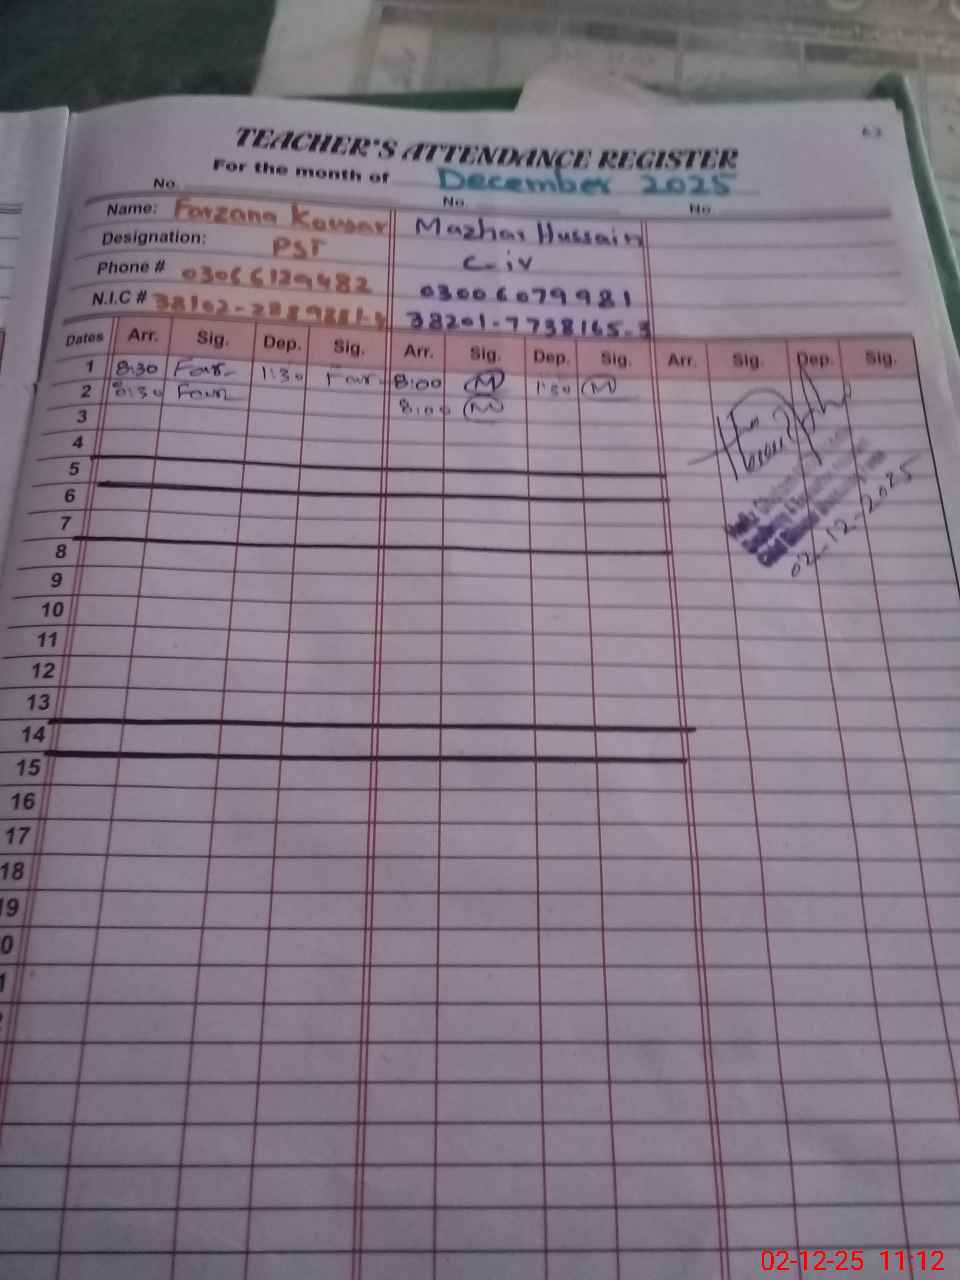 63
TEACHER'S ATTENDANCE REGISTER
For the month of December 2025
No. No. No.
Name: Farzana Kousar Mazhar Hussain
Designation: PST C-iv
Phone # 03066129482 03006079981
N.I.C # 38201-7738165-3
Dates Arr. Sig. Dep. Sig. Arr. Sig. Dep. Sig. Arr. Sig. Dep. Sig.
1 8:30 Far 1:30 Far 8:00 M 1:30 M
2 8:30 Far 8:00 M
3
4
5
6
7
8
9
10
11
12
13
14
15
16
17
18
19
0
1
02-12-2025
02-12-25 11:12